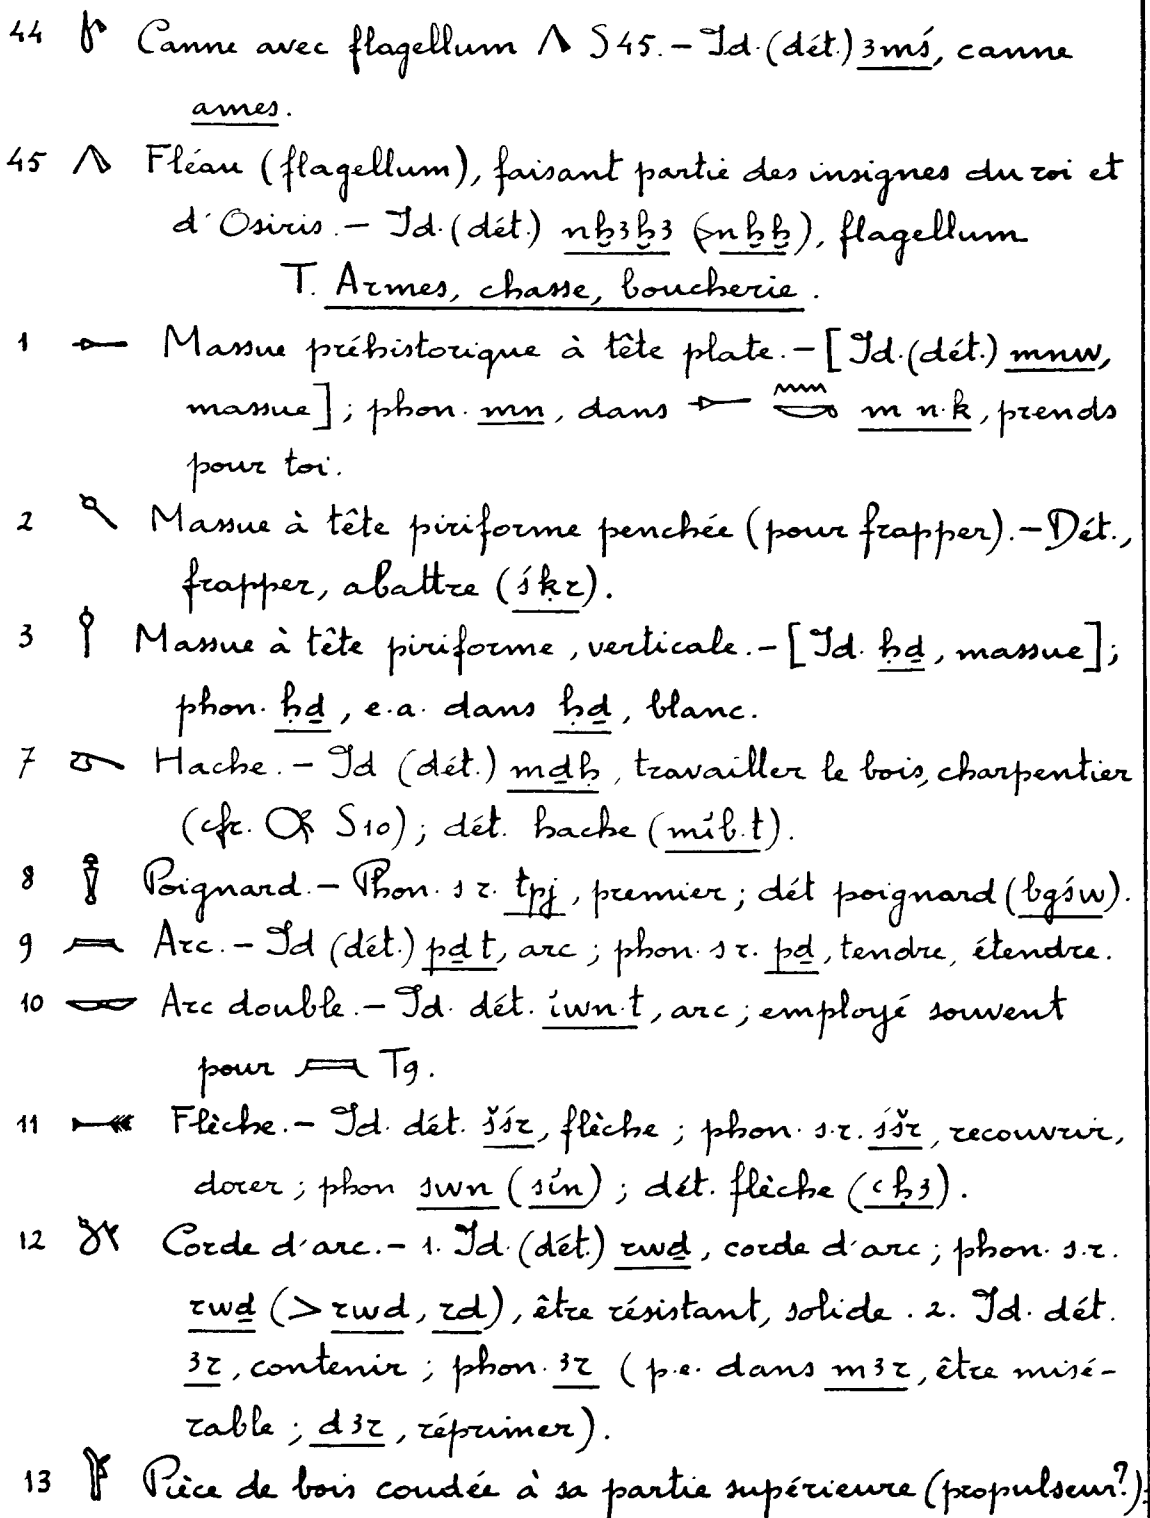 44 𓋿 Canne avec flagellum 𓌅 S45. – Id. (dét.) ꜣmś, canne
ames.
45 𓌅 Fléau (flagellum), faisant partie des insignes du roi et
d'Osiris. – Id. (dét.) nḫꜣḫꜣ (>nḫḫ), flagellum
T. Armes, chasse, boucherie.
1 𓌇 Massue préhistorique à tête plate. – [Id. (dét.) mnw,
massue]; phon. mn, dans 𓌇 𓈖𓎡 m n·k, prends
pour toi.
2 𓌈 Massue à tête piriforme penchée (pour frapper). – Dét.,
frapper, abattre (śḳr).
3 𓌉 Massue à tête piriforme, verticale. – [Id. ḥḏ, massue];
phon. ḥḏ, e.a. dans ḥḏ, blanc.
7 𓌍 Hache. – Id (dét.) mḏḥ, travailler le bois, charpentier
(cfr. 𓋃 S10); dét. hache (mi҆b.t).
8 𓌏 Poignard. – Phon. s r. tpj, premier; dét poignard (bgśw).
9 𓌑 Arc. – Id (dét.) pḏ t, arc; phon. s r. pḏ, tendre, étendre.
10 𓌔 Arc double. – Id. dét. i҆wn·t, arc; employé souvent
pour 𓌑 T9.
11 𓌕 Flèche. – Id. dét. šśr, flèche; phon. s.r. śšr, recouvrir,
dorer; phon swn (si҆n); dét. flèche (ꜥḥꜣ).
12 𓌗 Corde d'arc. – 1. Id. (dét.) rwḏ, corde d'arc; phon. s.r.
rwḏ (> rwd, rd), être résistant, solide. 2. Id. dét.
ꜣr, contenir; phon. ꜣr (p.e. dans mꜣr, être misé-
rable; dꜣr, réprimer).
13 𓌘 Pièce de bois coudée à sa partie supérieure (propulseur?).